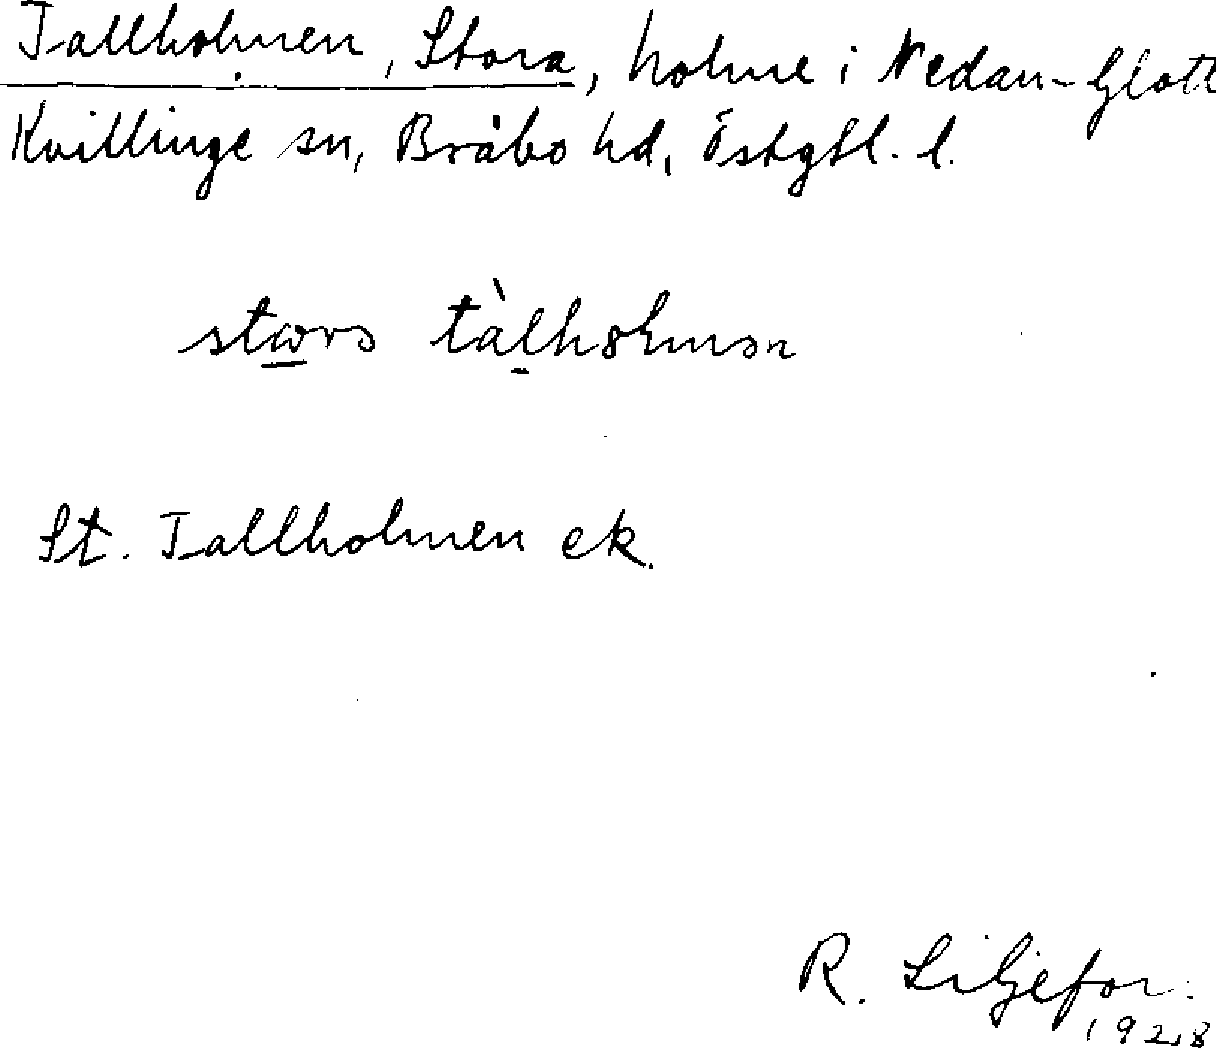 Tallholmen, Stora, holme i Nedan-Glott
Kvillinge sn, Bråbo hd, Östgtl. l.
stωrɔ tàlhȯlmən
St. Tallholmen ek.
R. Liljefor.
1928